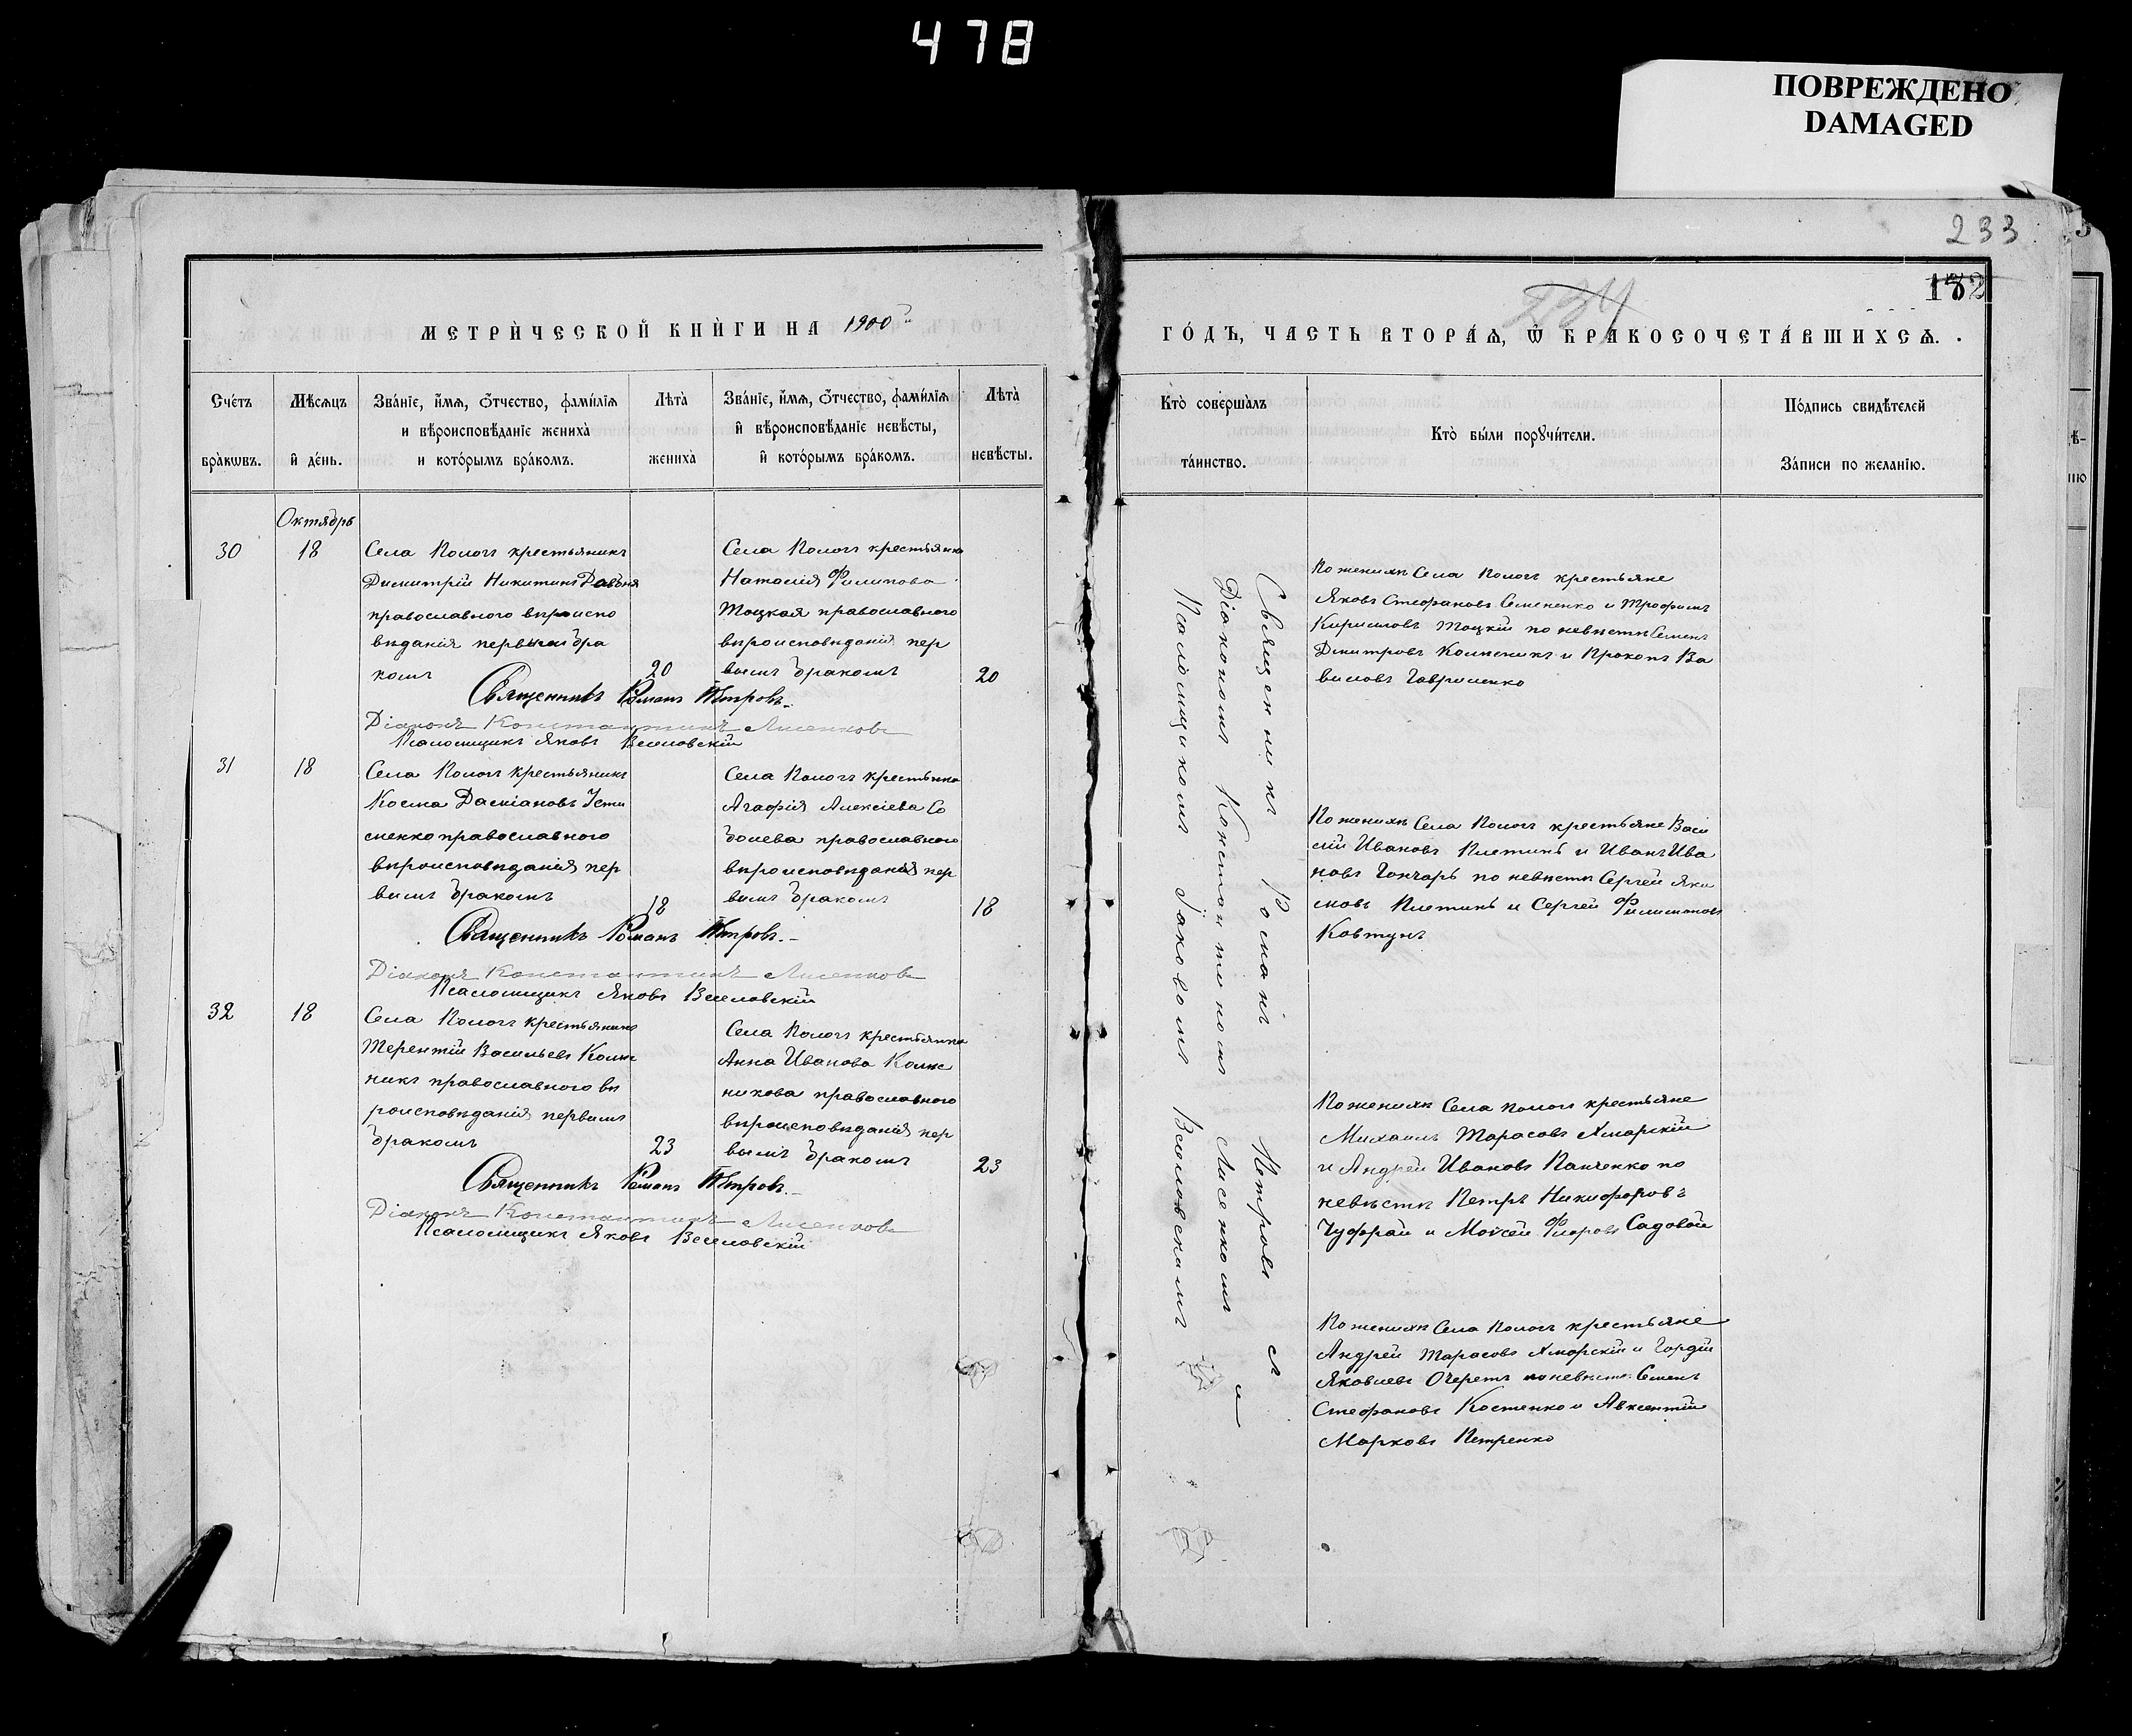 478
ПОВРЕЖДЕНО
DAMAGED
233
132
234
МЕТРИ́ЧЕСКОЙ КНИ́ГИ НА 1900й
ГО́ДЪ, ЧАСТЬ ВТОРА́Я, Ѿ БРАКОСОЧЕТА́ВШИХСѦ.
Сче́тъ бра́кѡвъ.
Мѣ́сѧцъ и҆ де́нь.
Зва́нїе, и҆́мѧ, ѻ҆́тчество, фами́лїѧ
и вѣроисповѣ́данїе жениха̀
и кото́рымъ бра́комъ.
Лѣта̀ жениха̀
Зва́нїе, и҆́мѧ, ѻ҆́тчество, фами́лїѧ
и҆ вѣроисповѣ́данїе невѣ́сты,
и҆ кото́рымъ бра́комъ.
Лѣта̀ невѣ́сты.
Кто̀ соверша́лъ
та́инство.
Кто̀ бы́ли порꙋчи́тели.
По́дпись свидѣ́телей
За́писи по жела́нїю.
Октябрь
30
18
Села Пологъ крестьянинъ
Димитрій Никитинъ
православнаго вѣроиспо
вѣданія первымъ бра
комъ
20
Села Пологъ крестьянка
Наталія Филипова
Тоцкая православнаго
вѣроисповѣданія пер
вымъ бракомъ
20
Священникъ Романъ Петровъ.
Діаконъ Константинъ Лисенковъ
Псаломщикъ Яковъ Веселовскій
31
18
Села Пологъ крестьянинъ
Косма Даміановъ Усти
менко православнаго
вѣроисповѣданія пер
вымъ бракомъ
18
Села Пологъ крестьянка
Агафія Алексіева Со
болева православнаго
вѣроисповѣданія пер
вымъ бракомъ
18
Священникъ Романъ Петровъ.
Діаконъ Константинъ Лисенковъ
Псаломщикъ Яковъ Веселовскій
32
18
Села Пологъ крестьянинъ
Терентій Васильевъ Колѣс
никъ православнаго вѣ
роисповѣданія первымъ
бракомъ
23
Села Пологъ крестьянка
Анна Иванова Колѣс
никова православнаго
вѣроисповѣданія пер
вымъ бракомъ
23
Священникъ Романъ Петровъ.
Діаконъ Константинъ Лисенковъ
Псаломщикъ Яковъ Веселовскій
Священникъ Романъ Петровъ съ
Діакономъ Константиномъ Лисенкомъ и
Псаломщикомъ Іаковомъ Веселовскимъ
По женихѣ Села Пологъ крестьяне
Яковъ Стефановъ Семененко и Трофимъ
Кириловъ Тоцкій по невѣстѣ Семенъ
Дмитровъ Колѣсникъ и Прокопъ Ва
виловъ Гавриленко
По женихѣ Села Пологъ крестьяне Васи
лій Ивановъ Плетинь и Иванъ Ива
новъ Гончаръ по невѣстѣ Сергѣй Яки
мовъ Плетинь и Сергѣй Филимоновъ
Ковтунъ
По женихѣ Села Пологъ крестьяне
Михаилъ Тарасовъ Хмарскій
и Андрей Ивановъ Панченко по
невѣстѣ Петръ Никифоровъ
Чуфрай и Моѵсей Флоровъ Садовой
По женихѣ Села Пологъ крестьяне
Андрей Тарасовъ Хмарскій и Гордій
Яковлевъ Очеретъ по невѣстѣ Семенъ
Стефановъ Костенко и Авксентій
Марковъ Петренко